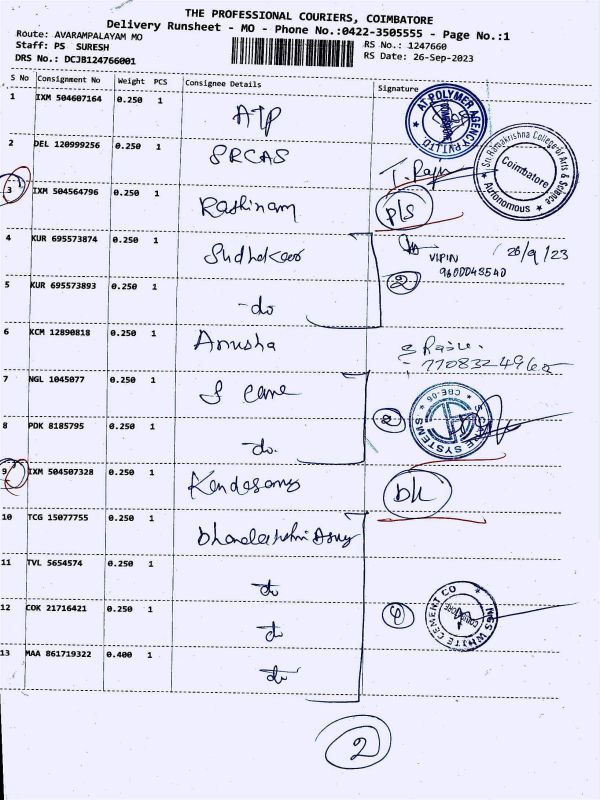 THE PROFESSIONAL COURIERS, COIMBATORE
Delivery Runsheet - MO - Phone No.:0422-3505555 - Page No.:1
Route: AVARAMPALAYAM MO
RS No.: 1247660
Staff: PS SURESH
RS Date: 26-Sep-2023
DRS No.: DCJB124766001
S No Consignment No Weight PCS Consignee Details Signature
1 IXM 504607164 0.250 1 ATP
AT POLYMER AGENCY PVT LTD
2 DEL 120999256 0.250 1 SRCAS
Sri Ramakrishna College of Arts & Science
Coimbatore
Autonomous
3 IXM 504564796 0.250 1 p/s
4 KUR 695573874 0.250 1 VIPIN 26/9/23
9600048540
5 KUR 695573893 0.250 1 -do 2
6 KCM 12890818 0.250 1 Anusha
7708324960
7 NGL 1045077 0.250 1 S
CBE-06
SYSTEMS
8 PDK 8185795 0.250 1 -do. 2
9 IXM 504507328 0.250 1 bk
10 TCG 15077755 0.250 1
11 TVL 5654574 0.250 1 do
12 COK 21716421 0.250 1 do 4
NGS WHITE CEMENT CO
COIMBATORE
13 MAA 861719322 0.400 1 do
2